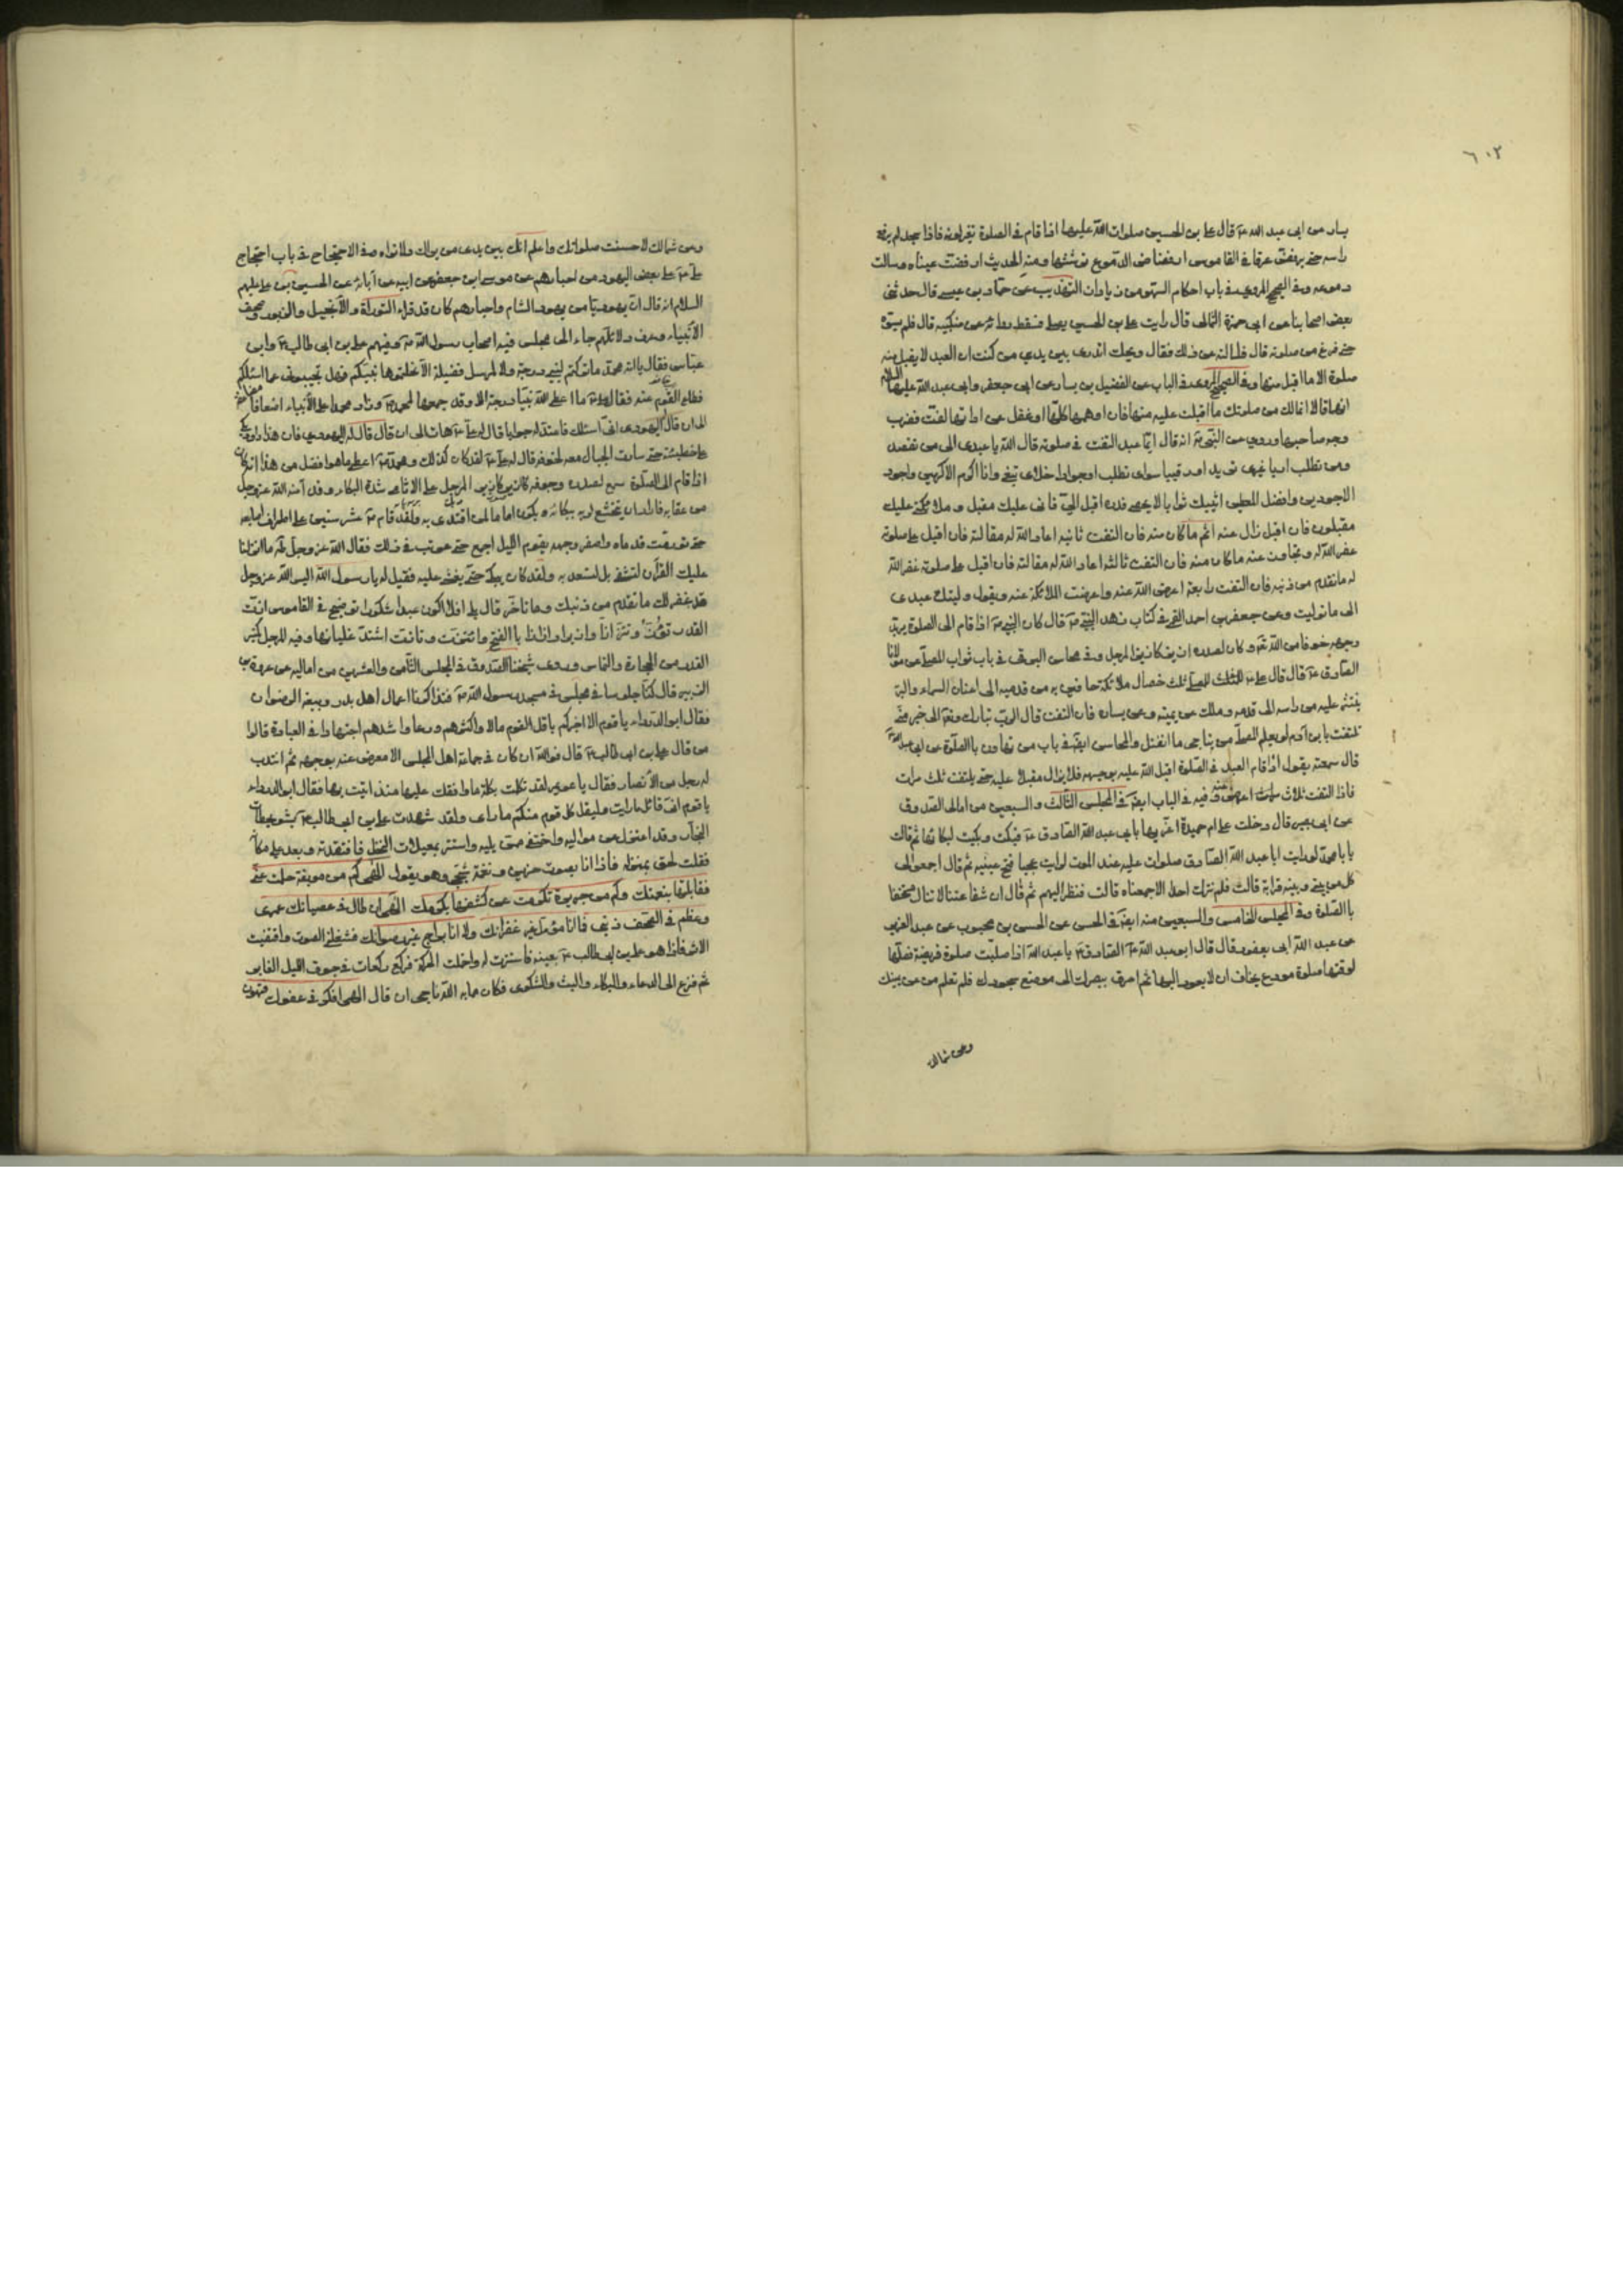 ٦٠٢
يسار عن ابى عبد الله ع قال كان على بن الحسين صلوات الله عليهما اذا قام فى الصلوة تغير لونه فاذا سجد لم يرفع
راسه حتى يرفض عرقا فى القاموس ارفضاض الدموع ترششها ومنه الحديث ارفضت عيناه وسالت
دموعه وفى الصحيح المروى فى باب احكام السهو من زيادات التهذيب عن حماد بن عيسى قال حدثنى
بعض اصحابنا عن ابى حمزة الثمالى قال رايت على بن الحسين يصلى فسقط رداؤه عن منكبيه قال فلم يسوه
حتى فرغ من صلوته قال فسالته عن ذلك فقال ويحك اتدرى بين يدى من كنت ان العبد لا يقبل منه
صلوة الا ما اقبل منها وفى الصحيح المروى فى الباب عن الفضيل بن يسار عن ابى جعفر وابى عبد الله عليهما السلام
انهما قالا انما لك من صلوتك ما اقبلت عليه منها فان اوهمها كلها او غفل عن ادائها لفت فضرب
وجه صاحبها وروى عن النبى ص انه قال ايما عبد التفت فى صلوته قال الله يا عبدى الى من تقصد
ومن تطلب اربا غيرى تريد او رقيبا سواى تطلب او جوادا خلاى تبغى وانا اكرم الاكرمين واجود
الاجودين وافضل المعطين اثيبك ثوابا لا يحصى قدره اقبل الى فانى عليك مقبل وملائكتى عليك
مقبلون فان اقبل زال عنه اثم ما كان منه فان التفت ثانيه اعاد الله له مقالته فان اقبل على صلوته
غفر الله له وتجاوز عنه ما كان منه فان التفت ثالثه اعاد الله له مقالته فان اقبل على صلوته غفر الله
له ما تقدم من ذنبه فان التفت رابعة اعرض الله عنه واعرضت الملائكة عنه ويقول وليتك عبدى
الى ما توليت وعن جعفر بن احمد القمى فى كتاب زهد النبى ص قال كان النبى ص اذا قام الى الصلوة يربد
وجهه خوفا من الله تعالى وكان لصدره ازيز كازيز المرجل وفى محاسن البرقى فى باب ثواب المصلى عن مولانا
الصادق ع قال قال على ع للمصلى ثلث خصال ملائكة حافين به من قدميه الى اعنان السماء والبر
ينتثر عليه من راسه الى قدمه وملك عن يمينه وعن يساره فان التفت قال الرب تبارك وتعالى الى خير منى
تلتفت يا بن آدم لو يعلم المصلى من يناجى ما انفتل والمحاسن ايضا فى باب من تهاون بالصلوة عن ابى عبد الله ع
قال سمعته يقول اذا قام العبد فى الصلوة اقبل الله عليه بوجهه فلا يزال مقبلا عليه حتى يلتفت ثلث مرات
فاذا التفت ثلاث مرات اعرض عنه وفيه فى الباب ايضا فى المجلس الثالث والسبعين من امالى الصدوق
عن ابى بصير قال دخلت على ام حميدة اعزيها بابى عبد الله الصادق ع فبكت وبكيت لبكائها ثم قالت
يا با محمد لو رايت ابا عبد الله الصادق صلوات عليه عند الموت لرايت عجبا فتح عينيه ثم قال اجمعوا الى
كل من بينى وبينه قرابة قالت فلم نترك احدا الا جمعناه قالت فنظر اليهم ثم قال ان شفاعتنا لا تنال مستخفا
بالصلوة وفى المجلس الخامس والسبعين منه ايضا فى الحسن عن الحسن بن محبوب عن عبد العزيز
عن عبد الله ابى يعفور قال قال ابو عبد الله ع الصادق ع يا عبد الله اذا صليت صلوة فريضة فصلها
لوقتها صلوة مودع يخاف ان لا يعود اليها ثم اصرف ببصرك الى موضع سجودك فلو تعلم من عن يمينك
وعن شمالك
وعن شمالك لاحسنت صلوتك واعلم انك بين يدى من يراك ولا تراه وفى الاحتجاج فى باب احتجاج
على ع على بعض اليهود من احبارهم عن موسى بن جعفر عن ابيه عن آبائه عن الحسين بن على عليهم
السلام انه قال ان يهوديا من يهود الشام واحبارهم كان قد قراء التوراة والانجيل والزبور وصحف
الانبياء وعرف دلائلهم جاء الى مجلس فيه اصحاب رسول الله ص وفيهم على بن ابى طالب ع وابن
عباس فقال يا امة محمد ما تركتم لنبى درجة ولا لمرسل فضيلة الا نحلتموها نبيكم فهل تجيبونى عما اسئلكم
فكاع القوم عنه فقال على ع ما اعطى الله نبيا درجة الا وقد جمعها لمحمد ص وزاد محمدا على الانبياء اضعافا مضاعفة
الى ان قال اليهودى انى اسئلك فاعد له جوابا قال له على ع هات الى ان قال قال له اليهودى فان هذا داود بكى
على خطيئته حتى سارت الجبال معه لخوفه قال له على ع لقد كان كذلك ومحمد ص اعطى ما هو افضل من هذا انه كان
اذا قام الى الصلوة سمع لصدره وجوفه ازيز كازيز المرجل على الاثافى من شدة البكاء وقد آمنه الله عز وجل
من عقابه فاراد ان يتخشع لربه ببكائه ويكون اماما لمن اقتدى به ولقد قام ص عشر سنين على اطراف اصابعه
حتى تورمت قدماه واصفر وجهه يقوم الليل اجمع حتى عوتب فى ذلك فقال الله عز وجل طه ما انزلنا
عليك القرآن لتشقى بل لتسعد به ولقد كان يبكى حتى يغشى عليه فقيل له يا رسول الله اليس الله عز وجل
قد غفر لك ما تقدم من ذنبك وما تاخر قال بلى افلا اكون عبدا شكورا توضيح فى القاموس ازت
القدر تؤز وتئز ازا وازيزا وازازا بالفتح وائتزت وتازت اشتد غليانها وفيه المرجل كمنبر
القدر من الحجارة والنحاس وروى شيخنا الصدوق فى المجلس الثامن والعشرين من اماليه عن عروة بن
الزبير قال كنا جلوسا فى مجلس فى مسجد رسول الله ص فتذاكرنا اعمال اهل بدر وبيعة الرضوان
فقال ابو الدرداء يا قوم الا اخبركم باقل القوم مالا واكثرهم ورعا واشدهم اجتهادا فى العبادة قالوا
من قال على بن ابى طالب ع قال فوالله ان كان فى جماعة اهل المجلس الا معرض عنه بوجهه ثم انتدب
له رجل من الانصار فقال يا عويمر لقد تكلمت بكلمة ما وافقك عليها منذ اتيت بها فقال ابو الدرداء
يا قوم انى قائل ما رايت وليقل كل قوم منكم ما راى ولقد شهدت على بن ابى طالب ع بشويحطات
النجار وقد اعتزل عن مواليه واختفى ممن يليه واستتر بمعيلات النخل فافتقدته وبعد على مكانه
فقلت لحق بمنزله فاذا انا بصوت حزين ونغمة شجى وهو يقول الهى كم من موبقة حلت عنى
فقابلتها بنعمتك وكم من جريرة تكرمت عن كشفها بكرمك الهى ان طال فى عصيانك عمرى
وعظم فى الصحف ذنبى فما انا مؤمل غير غفرانك ولا انا براج غير رضوانك فشغلنى الصوت واقتفيت
الاثر فاذا هو على بن ابى طالب ع بعينه فاستترت له واخملت الحركة فركع ركعات فى جوف الليل الغابر
ثم فزع الى الدعاء والبكاء والبث والشكوى فكان مما به الله ناجى ان قال الهى افكر فى عفوك فتهون